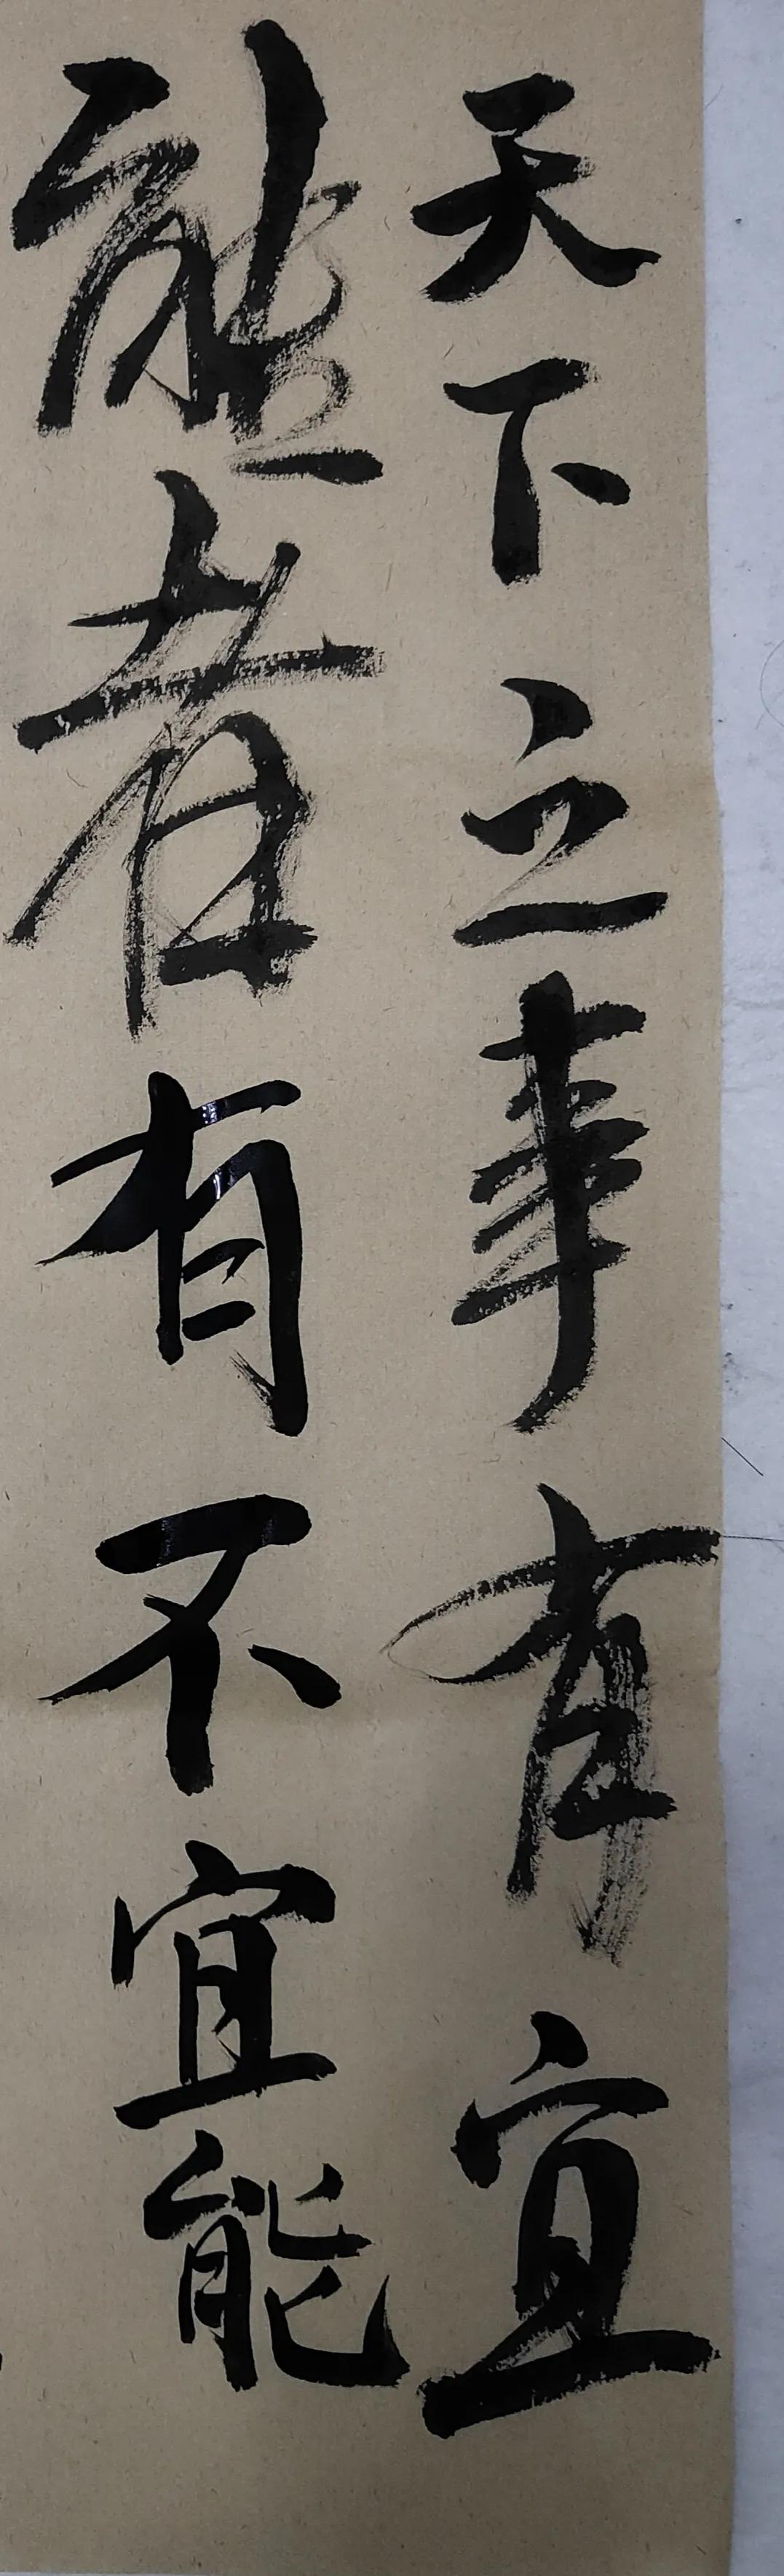 天下之事有宜
能者有不宜能